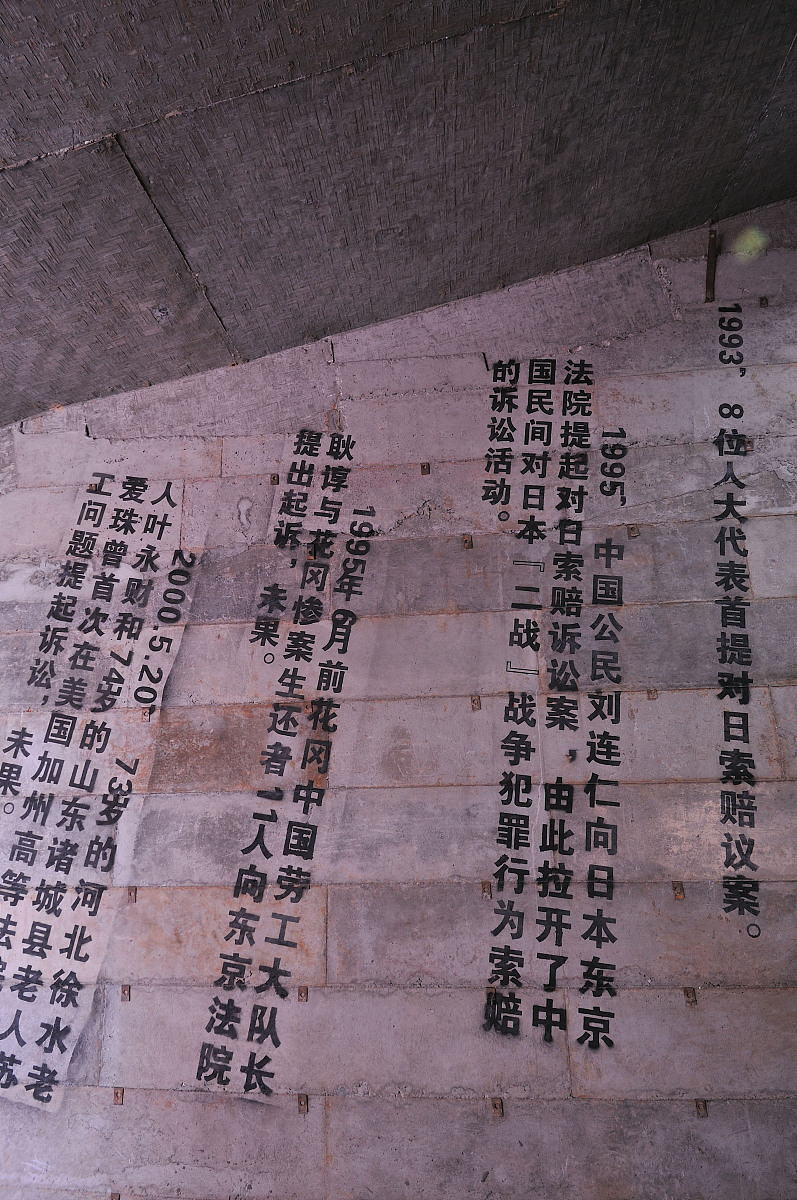 1993，8位人大代表首提对日索赔议案。
1995，中国公民刘连仁向日本东京
法院提起对日索赔诉讼案，由此拉开了中
国民间对日本『二战』战争犯罪行为索赔
的诉讼活动。
1995年6月前花冈中国劳工大队长
耿谆与花冈惨案生还者11人向东京法院
提出起诉，未果。
2000.5.20，73岁的河北徐水老
人叶永财和74岁的山东诸城县老人苏
爱珠曾首次在美国加州高等法院
工问题提起诉讼，未果。